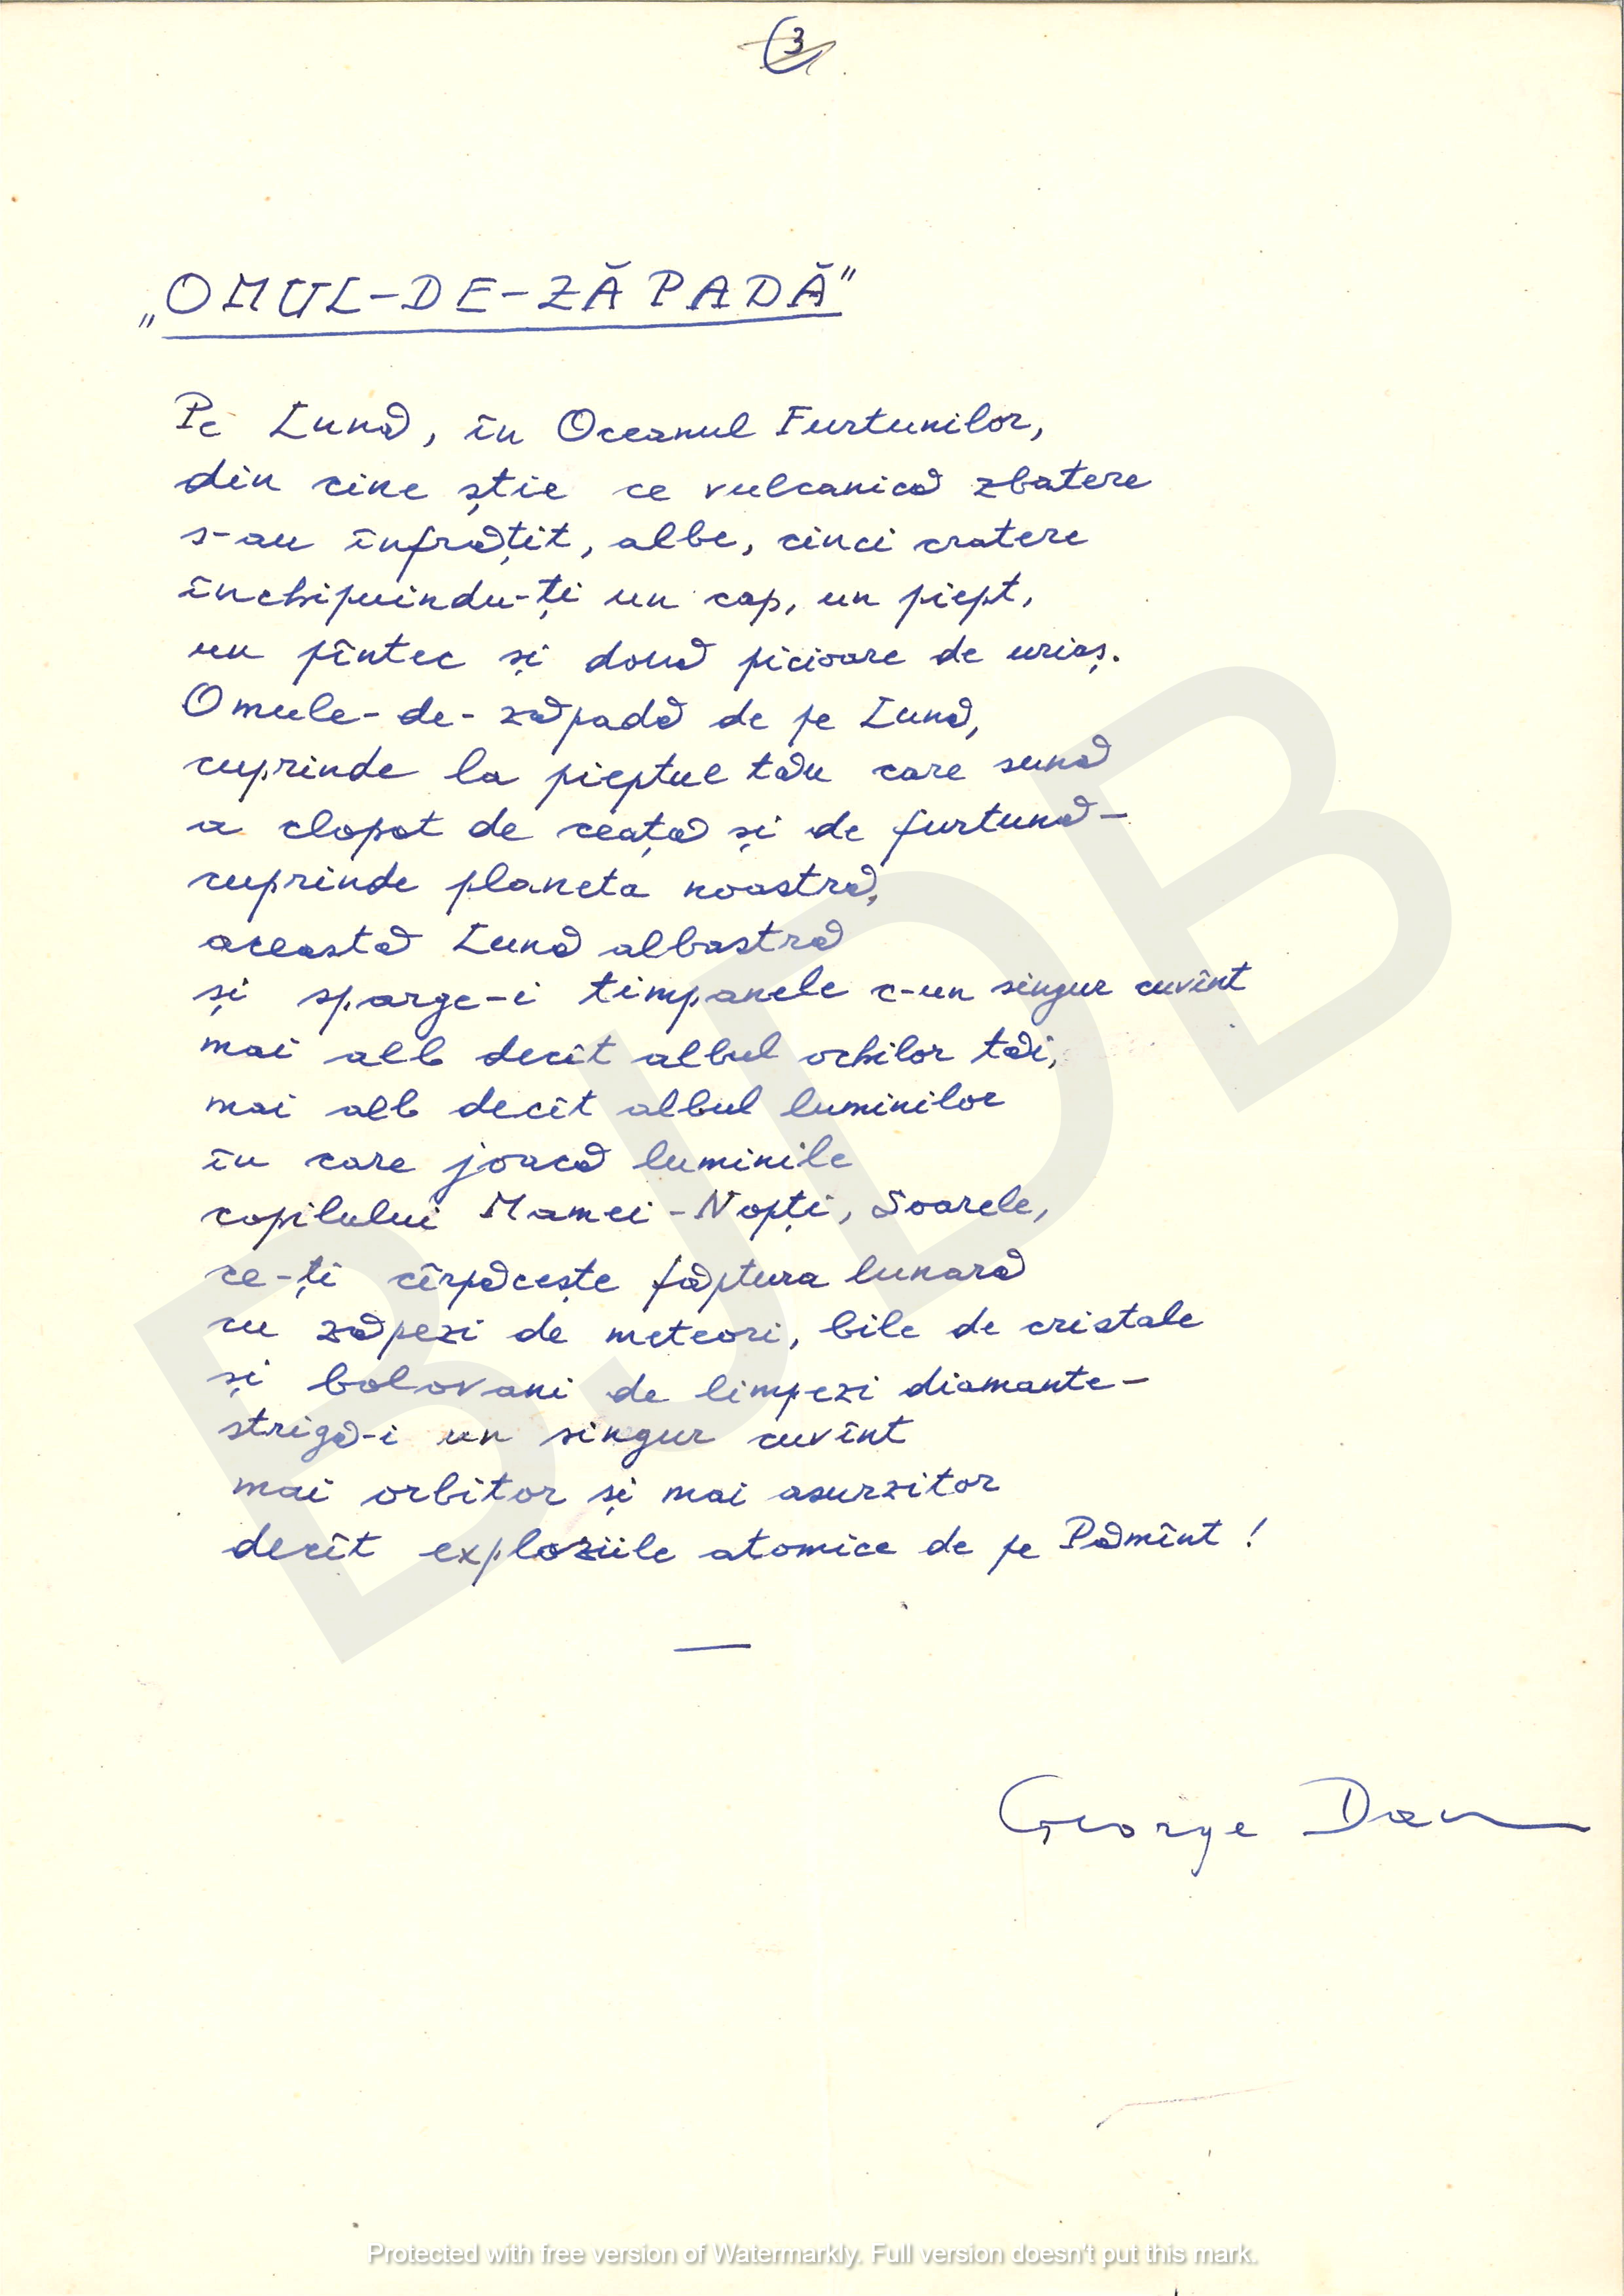 3
„OMUL-DE-ZĂPADĂ”
Pe Lună, în Oceanul Furtunilor,
din cine știe ce vulcanică zbatere
s-au înfrățit, albe, cinci cratere
închipuindu-ți un cap, un piept,
un pîntec și două picioare de uriaș.
Omule-de-zăpadă de pe Lună,
cuprinde la pieptul tău care sună
a clopot de ceață și de furtună-
cuprinde planeta noastră,
această Lună albastră
și sparge-i timpanele c-un singur cuvînt
mai alb decît albul ochilor tăi,
mai alb decît albul luminilor
în care joacă luminile
copilului Mamei-Nopți, Soarele,
ce-ți cîrpăcește făptura lunară
cu zăpezi de meteori, bile de cristale
și bolovani de limpezi diamante-
strigă-i un singur cuvînt
mai orbitor și mai asurzitor
decît exploziile atomice de pe Pămînt!
George Dan
BJDB
Protected with free version of Watermarkly. Full version doesn't put this mark.